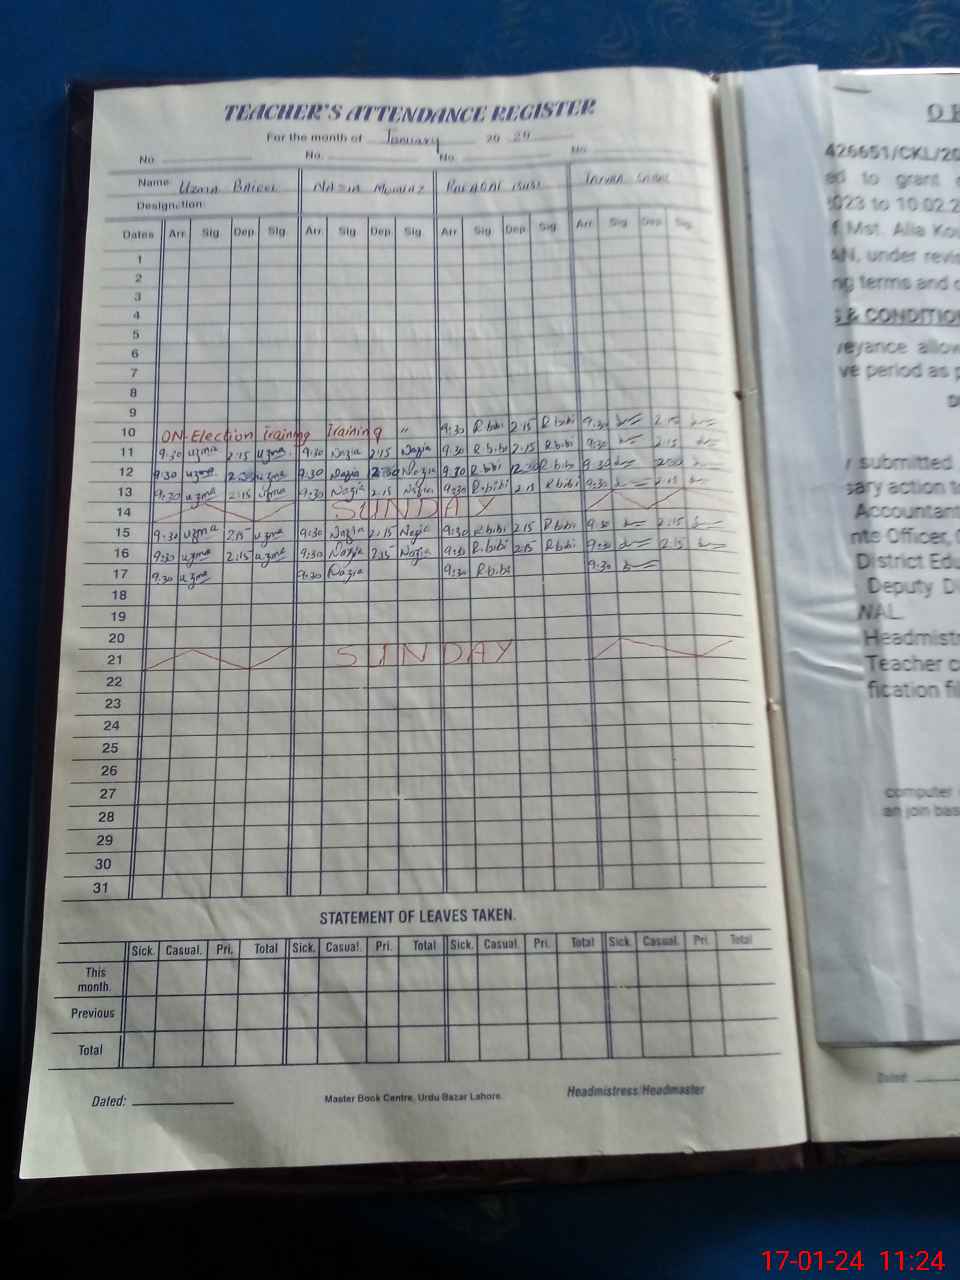 TEACHER'S ATTENDANCE REGISTER
For the month of January 20
No. No. No. No.
Name Uzma NAZIA
Designation:
Dates Arr. Sig. Dep. Sig. Arr. Sig. Dep. Sig. Arr. Sig. Dep. Sig. Arr. Sig. Dep. Sig.
1
2
3
4
5
6
7
8
9
10 ON-Election Training Training " 9:30 R.bibi 2:15 R.bibi 9:30 2:15
11 9:30 uzma 2:15 uzma 9:30 Nazia 2:15 Nazia 9:30 R.bibi 2:15 R.bibi 9:30 2:15
12 9:30 uzma uzma 9:30 Nazia Nazia 9:30 R.bibi R.bibi 9:30
13 9:30 uzma 2:15 uzma 9:30 Nazia 2:15 Nazia 9:30 R.bibi 2:15 R.bibi 9:30 2:15
14 SUNDAY
15 9:30 uzma 2:15 uzma 9:30 Nazia 2:15 Nazia 9:30 R.bibi 2:15 R.bibi 9:30 2:15
16 9:30 uzma 2:15 uzma 9:30 Nazia 2:15 Nazia 9:30 R.bibi 2:15 R.bibi 9:30 2:15
17 9:30 uzma 9:30 Nazia 9:30 R.bibi 9:30
18
19
20
21 SUNDAY
22
23
24
25
26
27
28
29
30
31
STATEMENT OF LEAVES TAKEN.
Sick. Casual. Pri. Total Sick. Casual. Pri. Total Sick. Casual. Pri. Total Sick. Casual. Pri. Total
This
month.
Previous
Total
Dated: Master Book Centre, Urdu Bazar Lahore. Headmistress/Headmaster
O
426651/CKL/20
to grant
2023 to 10.02.2
Mst. Alia
under
terms and
& CONDITION
period as
submitted
action to
Accountant
Officer,
District
Deputy
WAL.
Teacher
computer
an join
Dated
17-01-24 11:24